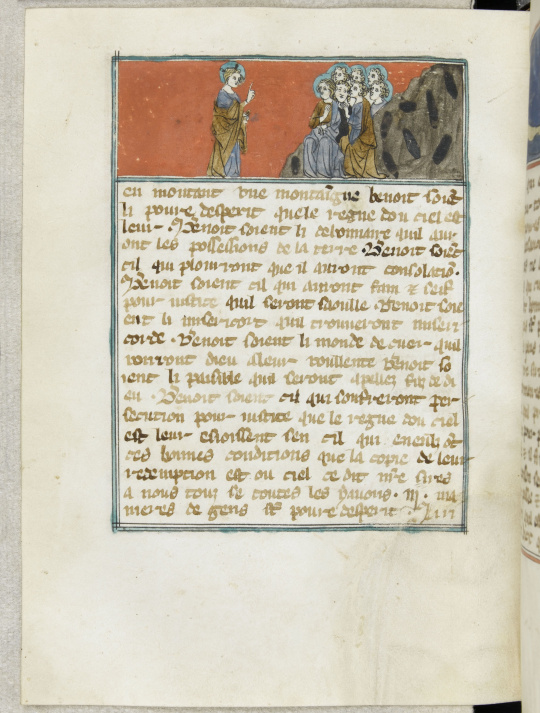 en montant une montaigne benoit soiet
li poure desperit que le regne dou ciel est
leur. Benoit soient li debonnaire quil aur
ont les possessions de la terre. Benoit soiet
cil qui plourront que il auront consolatio.
Benoit soient cil qui auront fain et seif
pour iustice quil seront saoulle. Benoit soie
ent li misericort quil trouueront miseri
corde. Benoit soient li monde de cuer quil
uerront dieu a leur uoullente benoit so
ient li paisible quil seront apellez fuiz de di
eu. Benoit soient cil qui souffreront per
secution pour iustice que le regne dou ciel
est leur esioissent sen cil qui
ces bonnes conditions que la copie de leur
redemption est ou ciel ce dit nre sires
a nous touz se toutes les .iii. ma
nieres de gens poure desperit